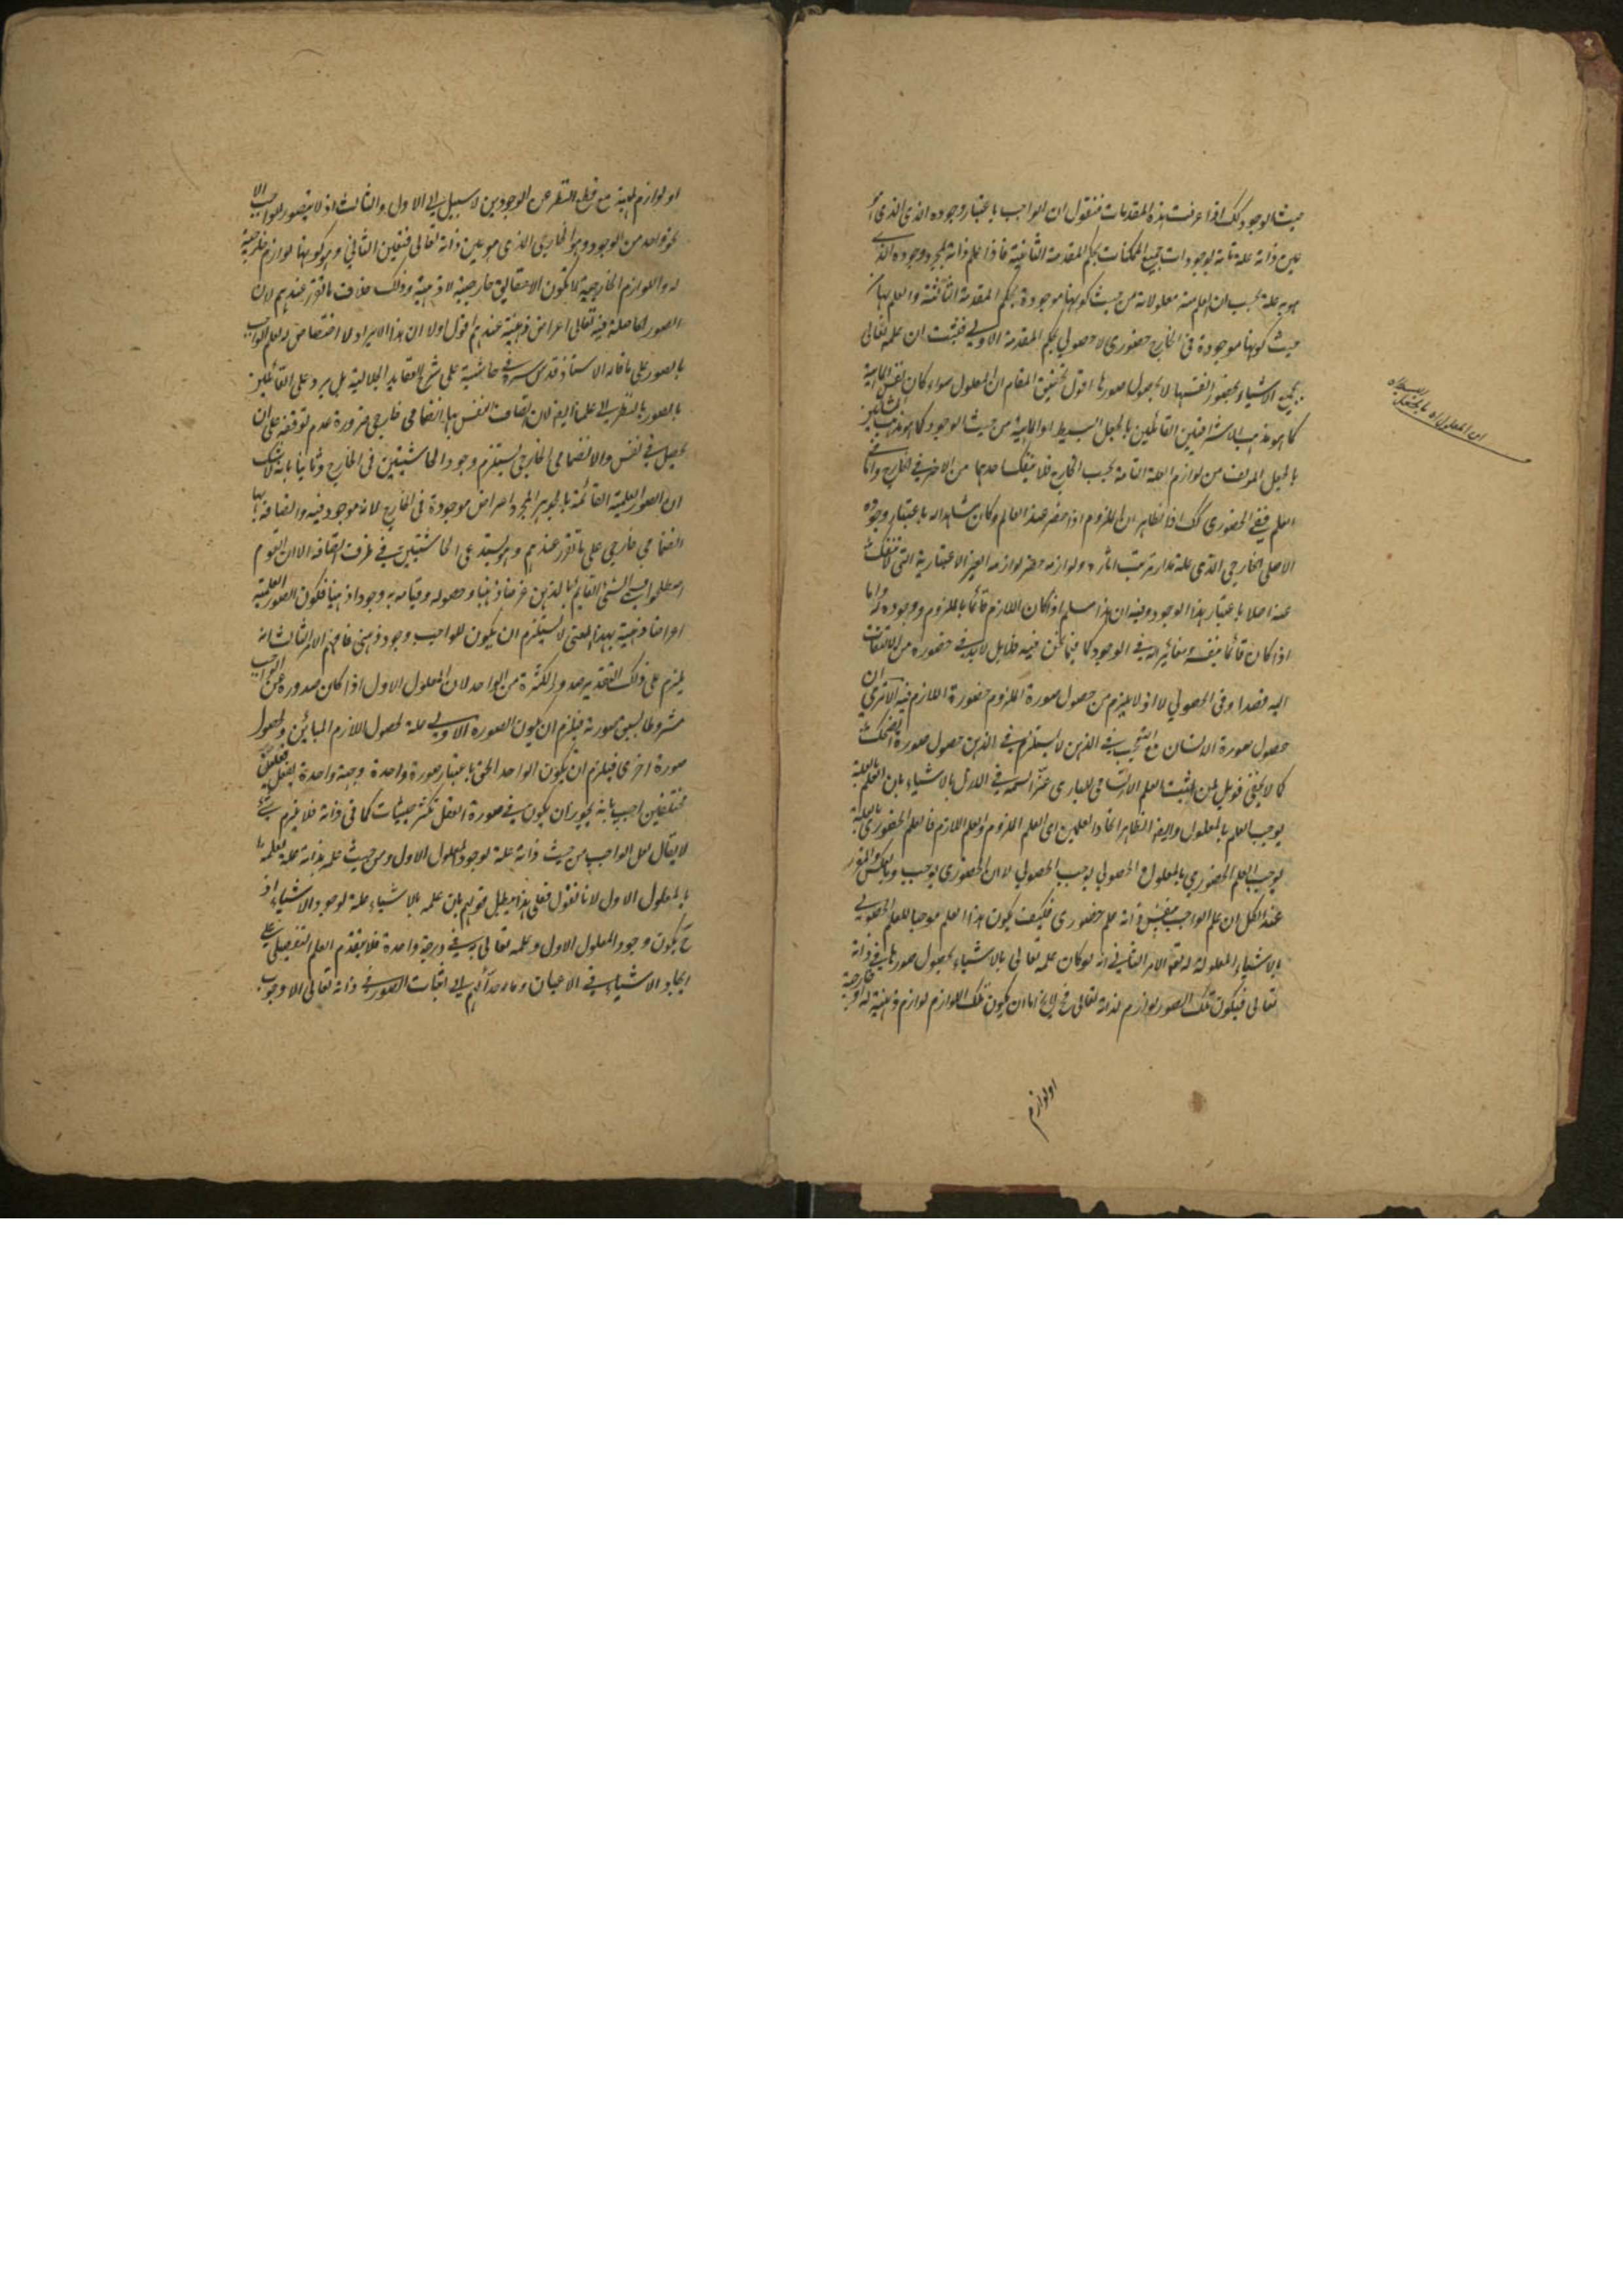 حيث الوجود كك اذا عرفت هذه المقدمات فنقول ان الواجب باعتبار وجوده الذى
عين ذاته علة تامة لوجودات جميع الممكنات بحكم المقدمة الثانية فاذا علم ذاته بمجرد وجوده الذى
هو به علة يجب ان يعلم منه معلولاته من حيث كونها موجودة بحكم المقدمة الثالثة والعلم بها من
حيث كونها موجودة فى الخارج حضورى لا حصولى بحكم المقدمة الاولى فثبت ان علمه تعالى
بجميع الاشياء بحضور انفسها لا بحصول صورها اقول تحقيق المقام ان المعلول سواء كان نفس الماهية
كما هو مذهب الاشراقيين القائلين بالجعل البسيط او الماهية من حيث الوجود كما هو مذهب المشائين
بالجعل المؤلف من لوازم العلة التامة بحسب الخارج فلا ينفك احدهما من الاخر فى الخارج واما فى
العلم ففى الحضورى كك اذ الظاهر ان الملزوم اذا حضر عند العالم وكان مشاهدا له باعتبار وجوده
الاصلى الخارجى الذى عليه مدار ترتب اثاره ولوازمه حضر لوازمه الغير الاعتبارية التى لا تنفك
عنه اصلا باعتبار هذا الوجود وفيه ان هذا مسلم اذا كان اللازم قائما بالملزوم ووجوده له واما
اذا كان قائما بنفسه مغائرا له فى الوجود كما فيما نحن فيه فلا بل لابد فى حضوره من الالتفات
اليه قصدا وفى الحصولى لا اذ لا يلزم من حصول صورة الملزوم حضور صورة اللازم فيه الا ترى ان
حصول صورة الانسان مع التعجب فى الذهن لا يستلزم فى الذهن حصول صورة الضحك
كما لا يخفى فويل لمن يثبت العلم الارتسامى للبارى عز اسمه فى الازل بالاشياء بان العلم بالعلة
يوجب العلم بالمعلول وايضا الظاهر اتحاد العلمين اى العلم الملزوم والعلم اللازم فالعلم الحضورى بالعلة
يوجب العلم الحضورى بالمعلول والحصولى يوجب الحصولى لا ان الحضورى يوجب وبالعكس والمقرر
عند الكل ان علم الواجب بنفس ذاته علم حضورى فكيف يكون هذا العلم موجبا للعلم الحصولى
بالاشياء المعلولة له تعالى الامر الثانى انه لو كان علمه تعالى بالاشياء بحصول صورها فى ذاته
تعالى فيكون تلك الصور لوازم لذاته تعالى فح لا يخ اما ان يكون تلك اللوازم لوازم ذهنية له او خارجية
اولوازم
او لوازم الماهية مع قطع النظر عن الوجودين لا سبيل الى الاول والثالث اذ لا يتصور للواجب الا
نحو واحد من الوجود وهو الخارجى الذى هو عين ذاته تعالى فتعين الثانى وهو كونها لوازم خارجية
له واللوازم الخارجية لا تكون الا حقائق خارجية لا ذهنية وذلك خلاف ما تقرر عندهم لان
الصور الحاصلة فيه تعالى اعراض ذهنية عندهم اقول اولا ان هذا الايراد لا اختصاص له بعلم الواجب
بالصور على ما قاله الاستاذ قدس سره فى حاشية على شرح العقايد الجلالية بل يرد على القائلين
بالصور بالنظر الى علمنا ايضا لان اتصاف النفس بها انضمامى خارجى ضرورة عدم توقفه على ان
يحصل فى نفس والانضمامى الخارجى يستلزم وجود الحاشيتين فى الخارج وثانيا بانه لا شك
ان الصور العلمية القائمة بالجوهر المجرد اعراض موجودة فى الخارج لانه موجود فيه واتصافه بها
انضمامى خارجى على ما تقرر عندهم وهو يستدعى الحاشيتين فى ظرف اتصافه الا ان القوم
اصطلحوا فى الشئ القايم بالذهن عرضا ذهنيا وحصوله وقيامه به وجودا ذهنيا فكون الصور العلمية
اعراضا ذهنية بهذا المعنى لا يستلزم ان يكون للواجب وجود ذهنى فافهم الامر الثالث انه
يلزم على ذلك التقدير صدور الكثرة من الواحد لان المعلول الاول اذا كان صدوره عن الواجب
مشروطا بسبق صورته فيلزم ان يكون الصورة الاولى علة لحصول اللازم المبائن ولحصول
صورة اخرى فيلزم ان يكون الواحد الحق باعتبار صورة واحدة وجهة واحدة يفعل فعلين
مختلفين اجيب بانه يجوز ان يكون فى صورة العقل تكثر حيثيات كما فى ذاته فلا يلزم شئ
لا يقال لعل الواجب من حيث ذاته علة لوجود المعلول الاول ومن حيث علمه بذاته علة لعلمه
بالمعلول الاول لانا نقول فعلى هذا يبطل قولهم بان علمه بالاشياء علة لوجود الاشياء اذ
ح يكون وجود المعلول الاول وعلمه تعالى به فى درجة واحدة فلا يتقدم العلم التفصيلى على
ايجاد الاشياء فى الاعيان وما دعاهم الى اثبات الصور فى ذاته تعالى الا وجوب